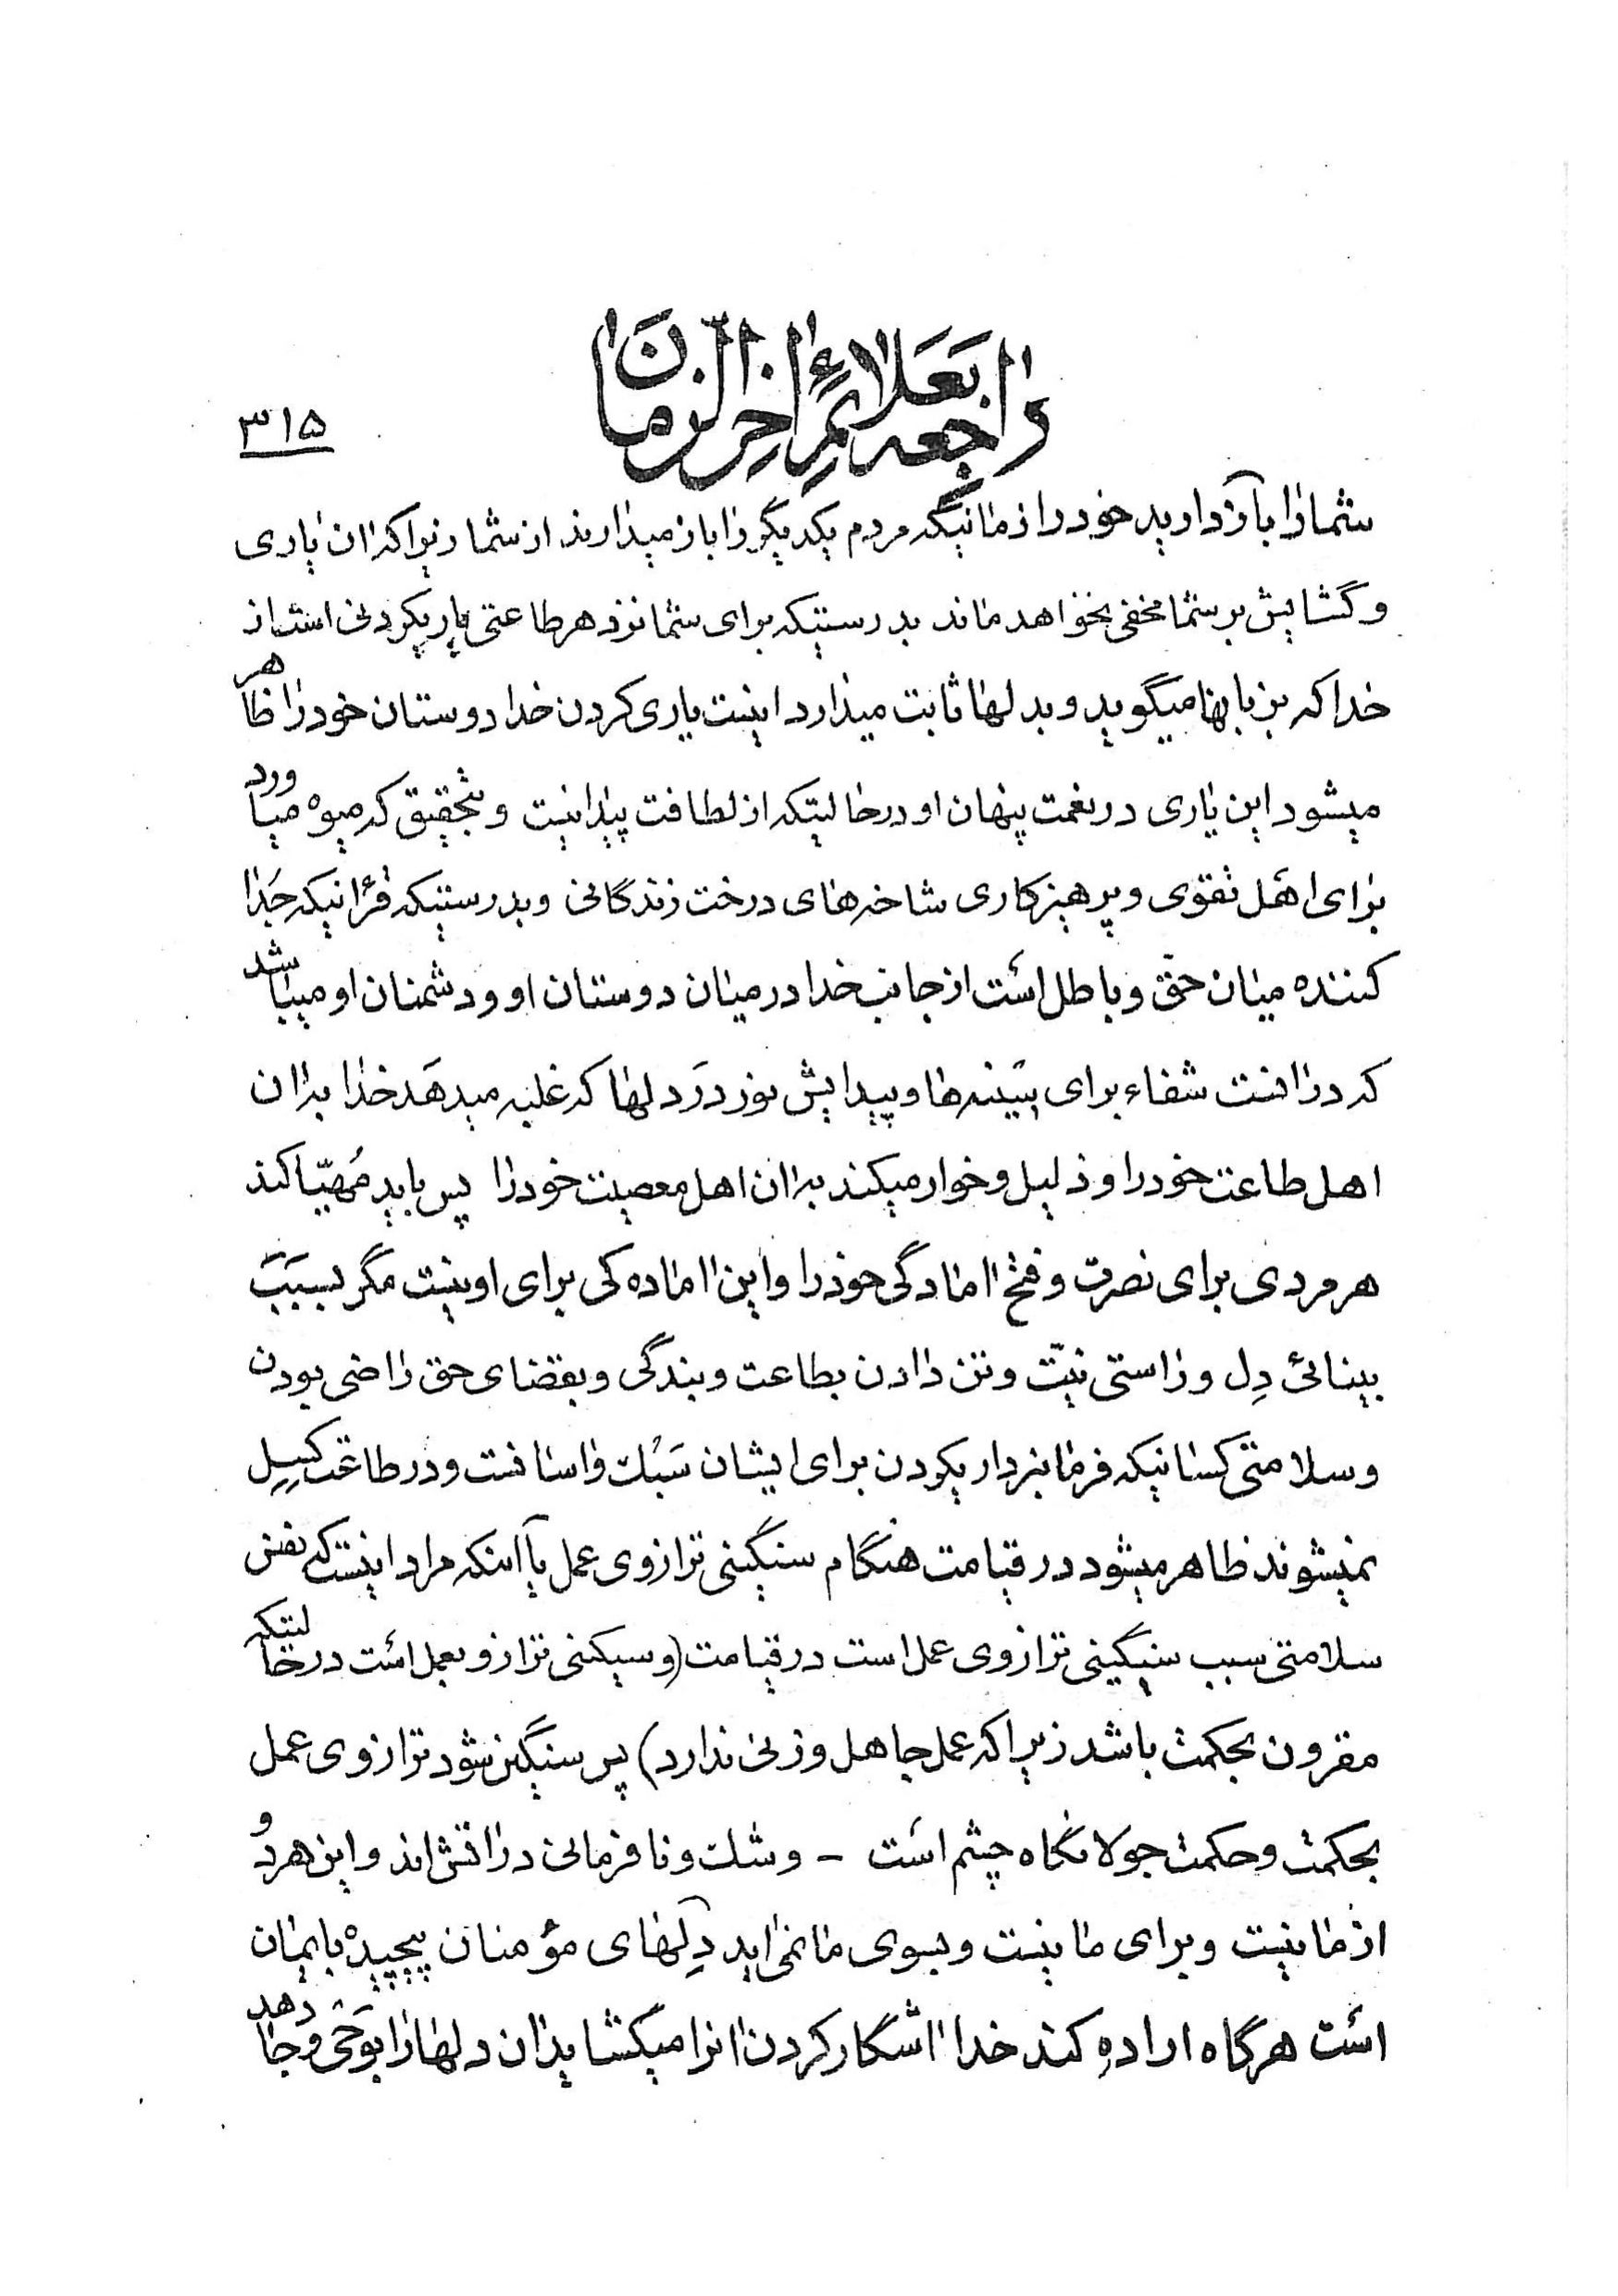 راجعه بعلائم اخر الزمان
۳۱۵
شما را باز دارید خود را از مانیکه مردم یکدیگر را باز میدارند از شما زیرا که ان یاری
و گشایش بر شما مخفی نخواهد ماند بدرستیکه برای شما نزد هر طاعتی یاریکردنی است از
خدا که بزبانها میگوید و بدلها ثابت میدارد اینست یاری کردن خدا دوستان خود را ظاهر
میشود این یاری در نعمت پنهان او در حالتیکه از لطافت پیدا نیست و بتحقیق که میوه میاورد
برای اهل تقوی و پرهیزکاری شاخه‌های درخت زندگانی و بدرستیکه قرانیکه جدا
کننده میان حق و باطل است از جانب خدا در میان دوستان او و دشمنان او میباشد
که در انست شفاء برای سینه‌ها و پیدایش نور در دلها که غلبه میدهد خدا بدان
اهل طاعت خود را و ذلیل و خوار میکند بدان اهل معصیت خود را پس باید مهیّا کند
هر مردی برای نصرت و فتح امادگی خود را و این اماده کی برای او نیست مگر بسبب
بینائی دِل و راستی نیّت و تن دادن بطاعت و بندگی و بقضای حق راضی بودن
و سلامتی کسانیکه فرمانبرداریکردن برای ایشان سَبُک و اسانست و در طاعت کسِل
نمیشوند ظاهر میشود در قیامت هنگام سنگینی ترازوی عمل یا اینکه مراد اینست که نفس
سلامتی سبب سنگینی ترازوی عمل است در قیامت (و سنگینی ترازو بعمل است در حالتیکه
مقرون بحکمت باشد زیرا که عمل جاهل وزنی ندارد) پس سنگین شود ترازوی عمل
بحکمت و حکمت جولانگاه چشم است - و شک و نافرمانی در اتش‌اند و این هردو
از ما نیست و برای ما نیست و بسوی ما نمی‌اید دِلهای مؤمنان پیچیده بایمان
است هرگاه اراده کند خدا اشکار کردن انرا میکشاید ان دلها را بوحی و جا دهد